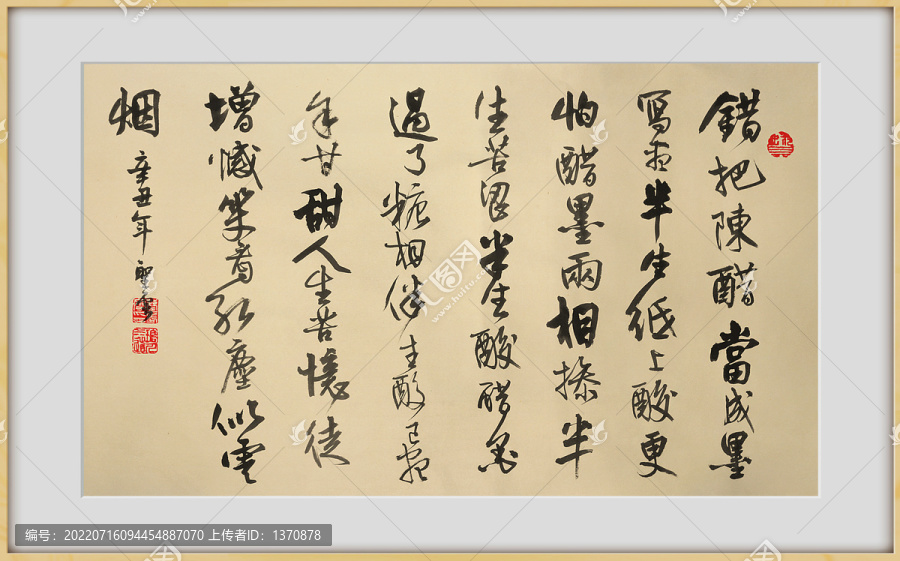 錯把陳醋當成墨
寫盡半生紙上酸更
怕醋墨兩相摻半
生苦澀半生酸醋墨
過了糖相伴生酸已
甘甜人生苦憶徒
增憾笑看紅塵似雲
烟
辛丑年
编号:20220716094454887070 上传者ID:1370878